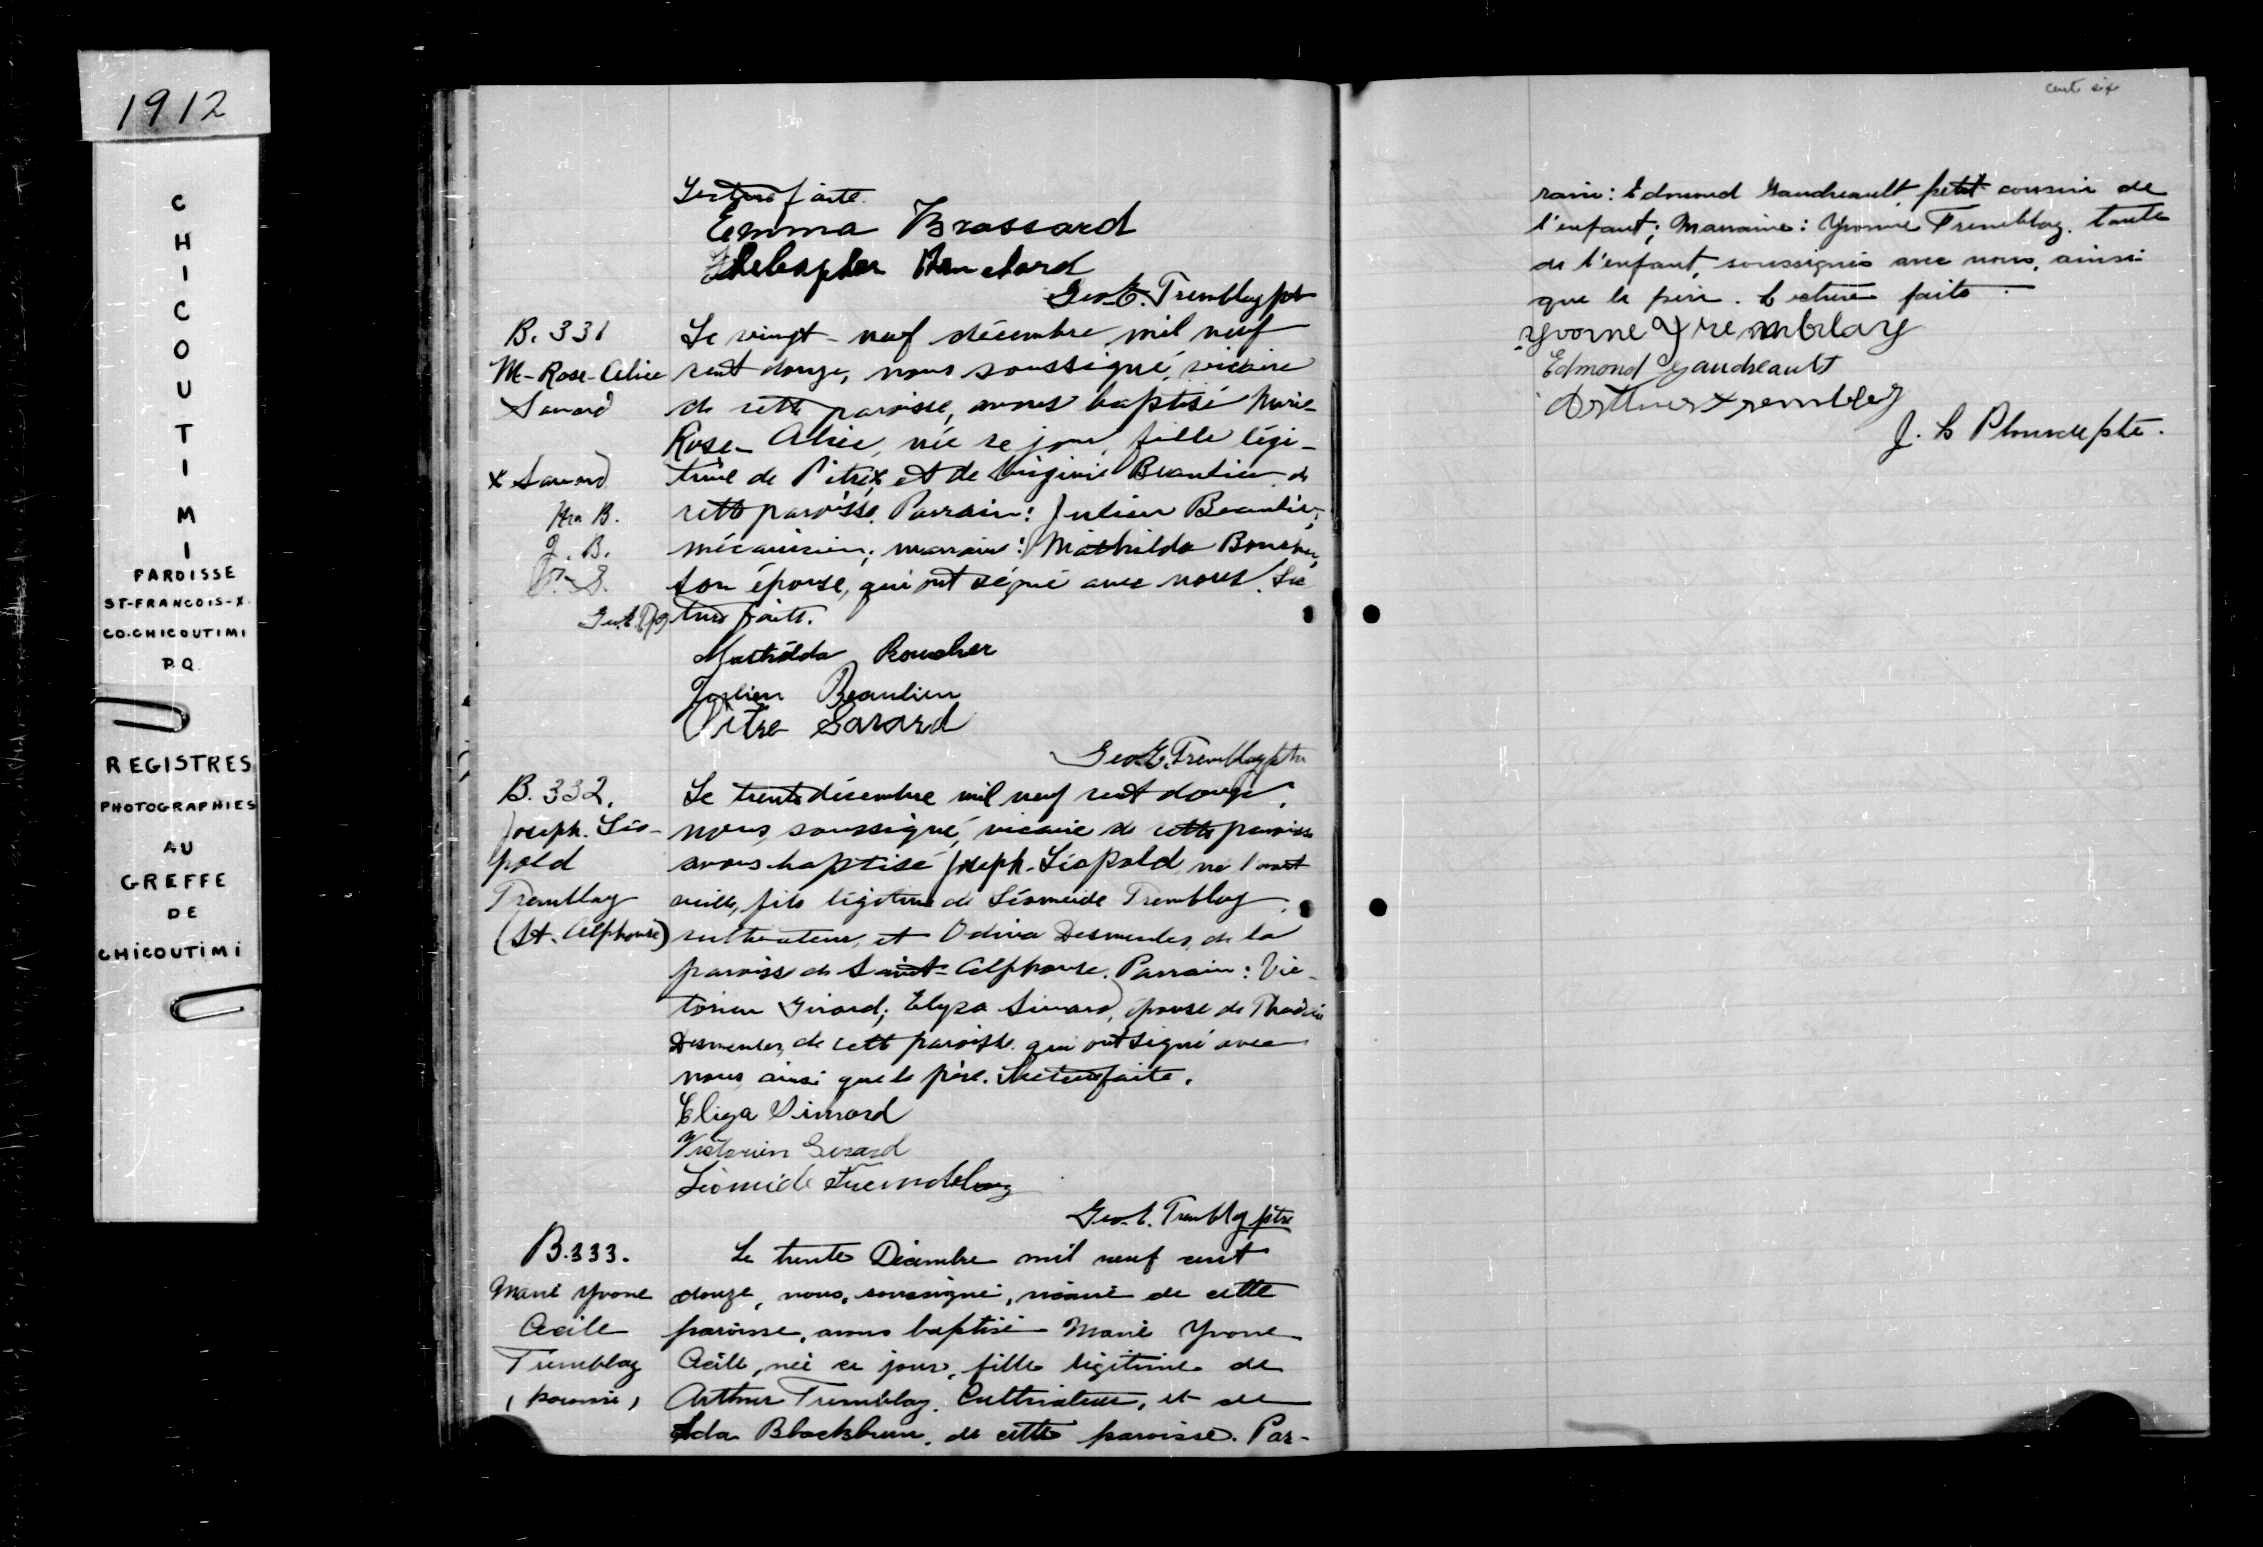 1912
CHICOUTIMI
PAROISSE
ST-FRANCOIS-X.
CO. CHICOUTIMI
P.Q.
REGISTRES
PHOTOGRAPHIES
AU
GREFFE
DE
CHICOUTIMI
Lecture faite.
Emma Brassard
Geo. E. Tremblay ptr
B. 331
M-Rose-Alice
Savard
x Savard
M B.
J. B.
Le vingt-neuf décembre mil neuf
cent douze, nous soussigné, vicaire
de cette paroisse, avons baptisé Marie-
Rose-Alice, née ce jour, fille légi-
time de Pitre x et de Virginie Beaulieu de
cette paroisse. Parrain: Julien Beaulieu,
mécanicien; marraine: Mathilda Boucher,
son épouse, qui ont signé avec nous. Lec
ture faite.
Mathilda Boucher
Julien Beaulieu
Pitre Savard
Geo. E. Tremblay ptr
B. 332.
Joseph. Léo-
pold
Tremblay
(St. Alphonse)
Le trente décembre mil neuf cent douze,
nous, soussigné, vicaire de cette paroisse
avons baptisé Joseph-Léopold, né l'avant
veille, fils légitime de Léoméide Tremblay
cultivateur, et Odina Desmeules, de la
paroisse de Saint-Alphonse. Parrain: Vic-
torien Girard; Elyza Simard, épouse de
Desmeules, de cette paroisse qui ont signé avec
nous ainsi que le père. Lecture faite.
Eliza Simard
Victorien Girard
Léoméide Tremblay
Geo. E. Tremblay ptre
B. 333.
Marie Yvone
Cécile
Tremblay
(paroisse)
Le trente Décembre mil neuf cent
douze, nous, soussigné, vicaire de cette
paroisse, avons baptisé Marie Yvone
Cécile, née ce jour, fille légitime de
Arthur Tremblay, Cultivateur, et de
Ada Blackburn, de cette paroisse. Par-
cent six
rain: Edmond Gaudreault, petit cousin de
l'enfant; Marraine: Yvonne Tremblay, tante
de l'enfant, soussignés avec nous, ainsi
que le père. Lecture faite.
Yvonne Tremblay
Edmond Gaudreault
Arthur Tremblay